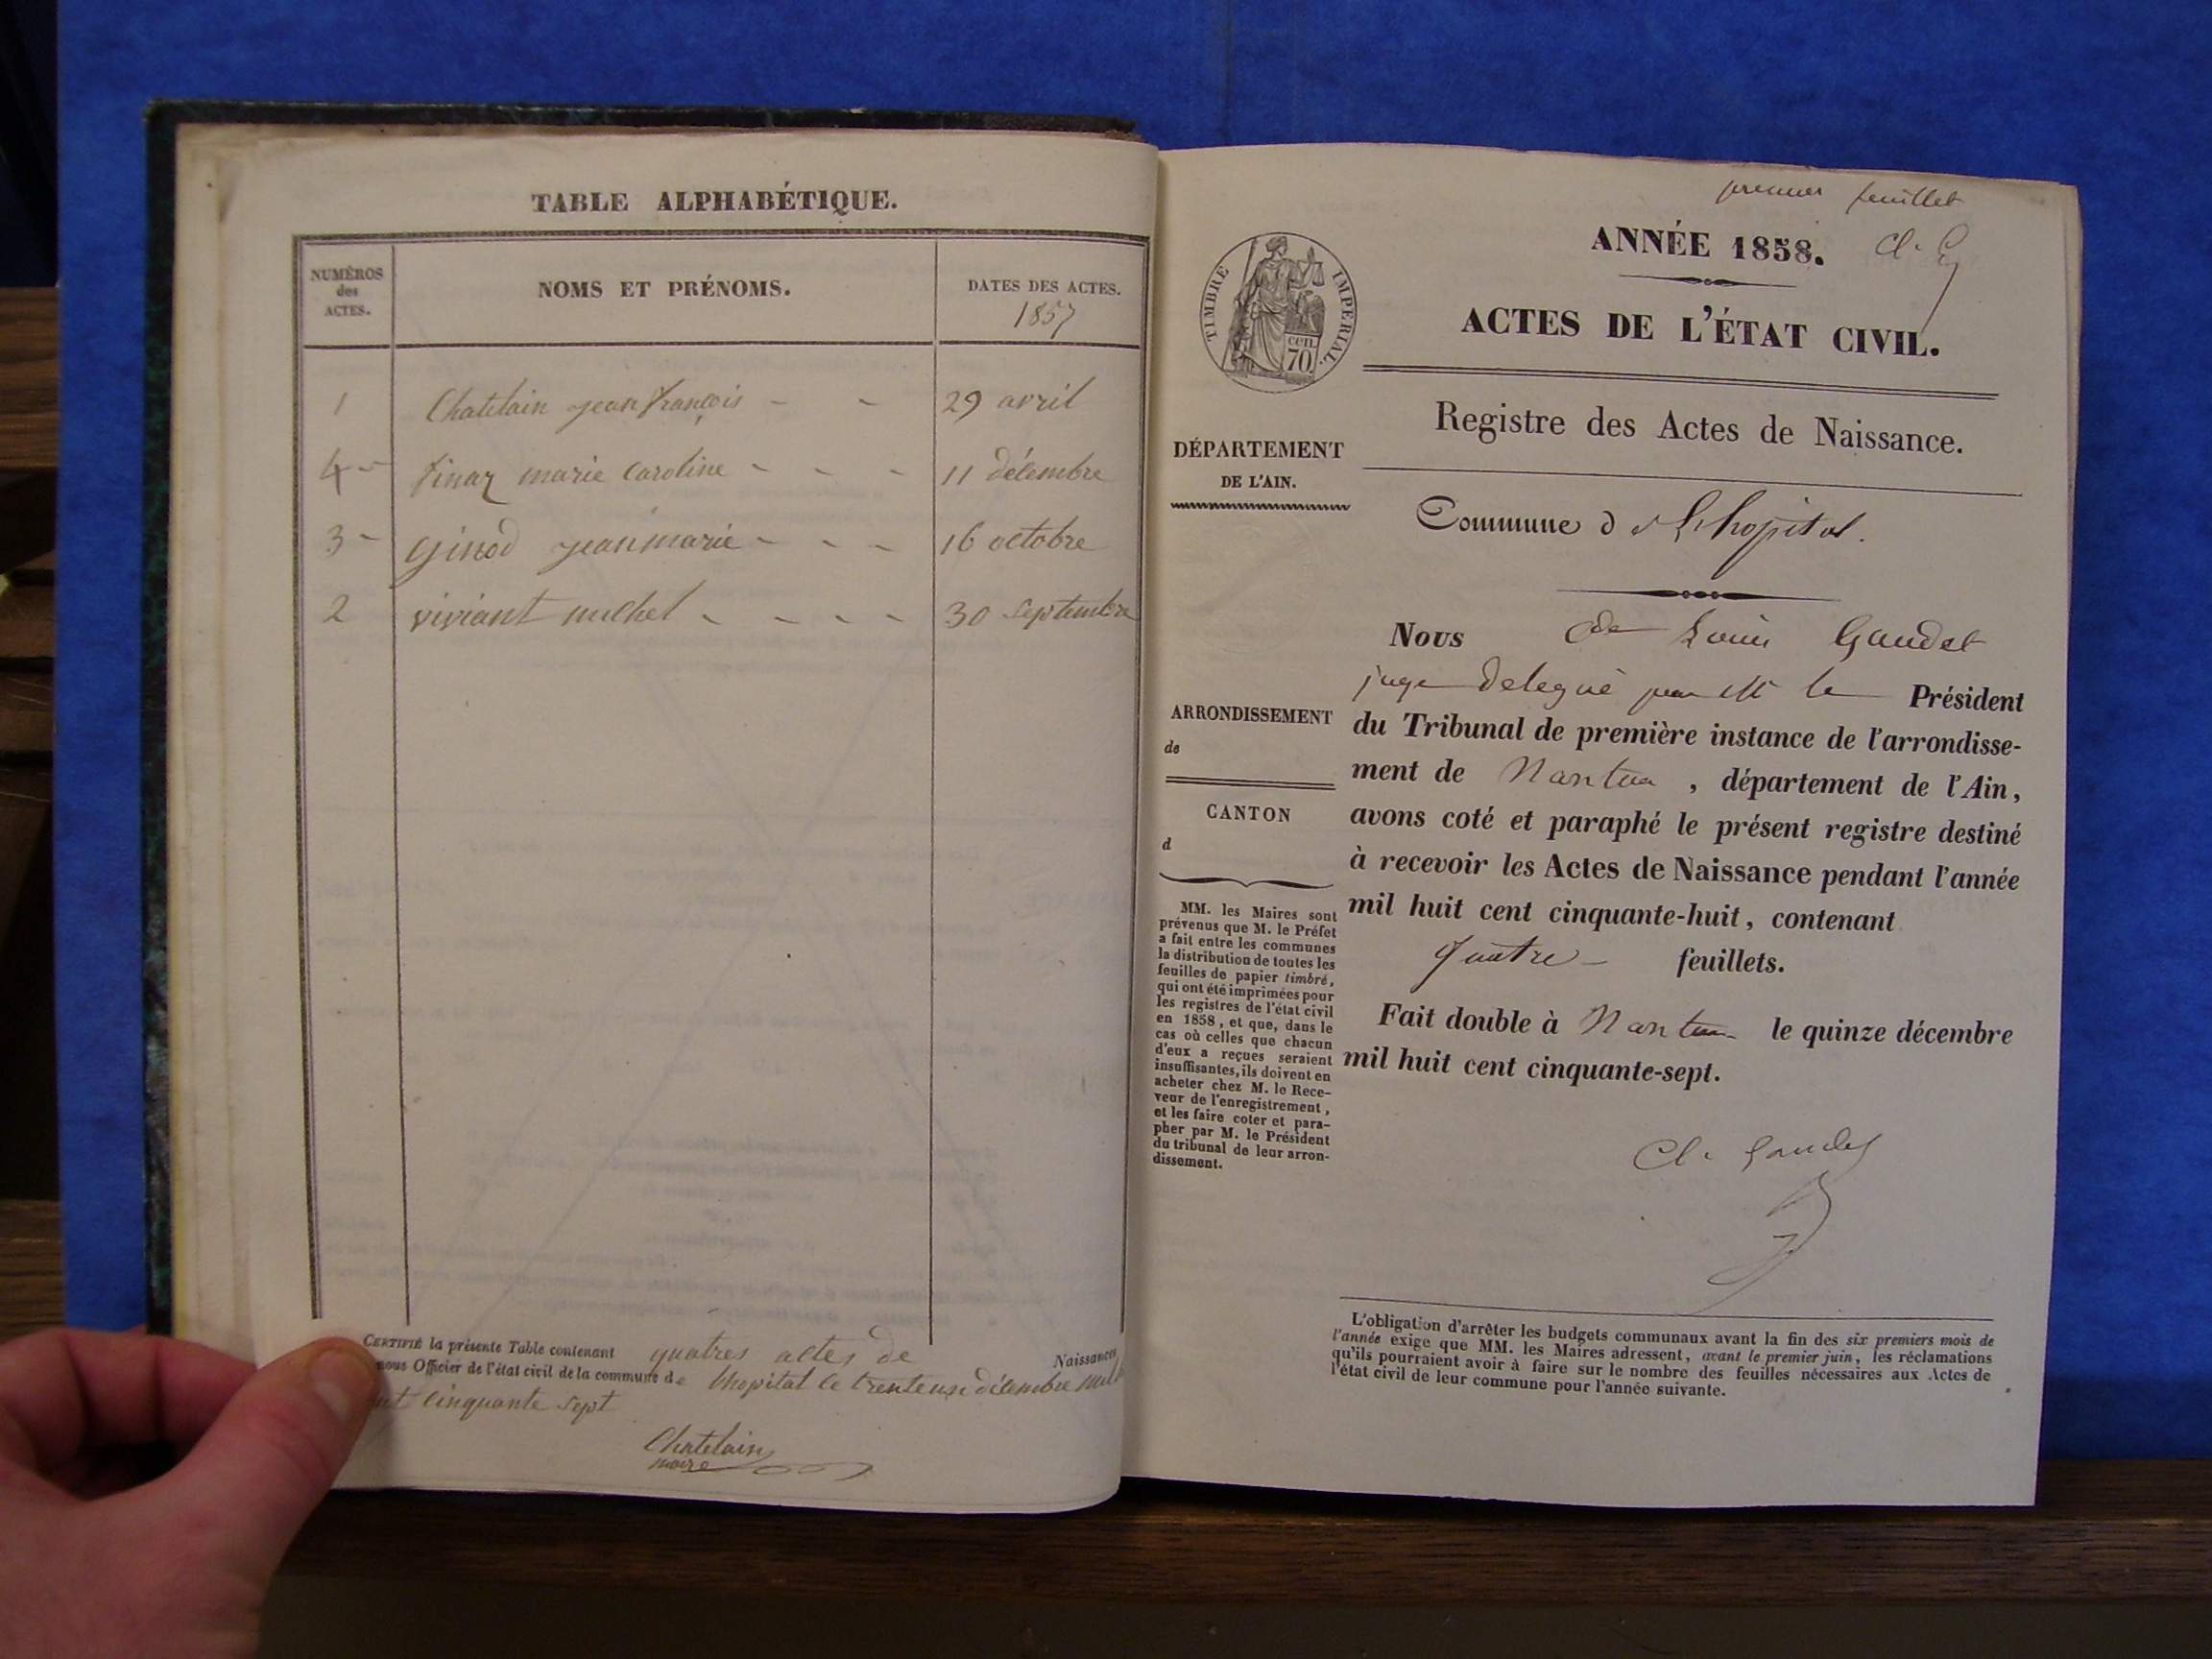 TABLE ALPHABÉTIQUE.
NUMÉROS
des
ACTES.
NOMS ET PRÉNOMS.
DATES DES ACTES.
1857
1 Chatelain jean françois - - 29 avril
4 - finaz marie caroline - - - 11 décembre
3 - ginod jean marie - - - 16 octobre
2 viviant michel - - - - 30 septembre
CERTIFIÉ la présente Table contenant quatres actes de Naissances
nous Officier de l'état civil de la commune de lhopital le trente un décembre mil
cinquante sept
Chatelain
maire
premier feuillet
ANNÉE 1858.
Cl. G
ACTES DE L'ÉTAT CIVIL.
TIMBRE IMPERIAL.
CEN.
70.
Registre des Actes de Naissance.
DÉPARTEMENT
DE L'AIN.
Commune d e Lhopital.
Nous Louis Gaudet
juge delegué par M le Président
ARRONDISSEMENT
de
du Tribunal de première instance de l'arrondisse-
ment de Nantua , département de l'Ain,
CANTON
d
avons coté et paraphé le présent registre destiné
à recevoir les Actes de Naissance pendant l'année
mil huit cent cinquante-huit, contenant
quatre - feuillets.
Fait double à Nantua le quinze décembre
mil huit cent cinquante-sept.
Cl. Gaudet
MM. les Maires sont
prévenus que M. le Préfet
a fait entre les communes
la distribution de toutes les
feuilles de papier timbré,
qui ont été imprimées pour
les registres de l'état civil
en 1858, et que, dans le
cas où celles que chacun
d'eux a reçues seraient
insuffisantes, ils doivent en
acheter chez M. le Rece-
veur de l'enregistrement,
et les faire coter et para-
pher par M. le Président
du tribunal de leur arron-
dissement.
L'obligation d'arrêter les budgets communaux avant la fin des six premiers mois de
l'année exige que MM. les Maires adressent, avant le premier juin, les réclamations
qu'ils pourraient avoir à faire sur le nombre des feuilles nécessaires aux Actes de
l'état civil de leur commune pour l'année suivante.